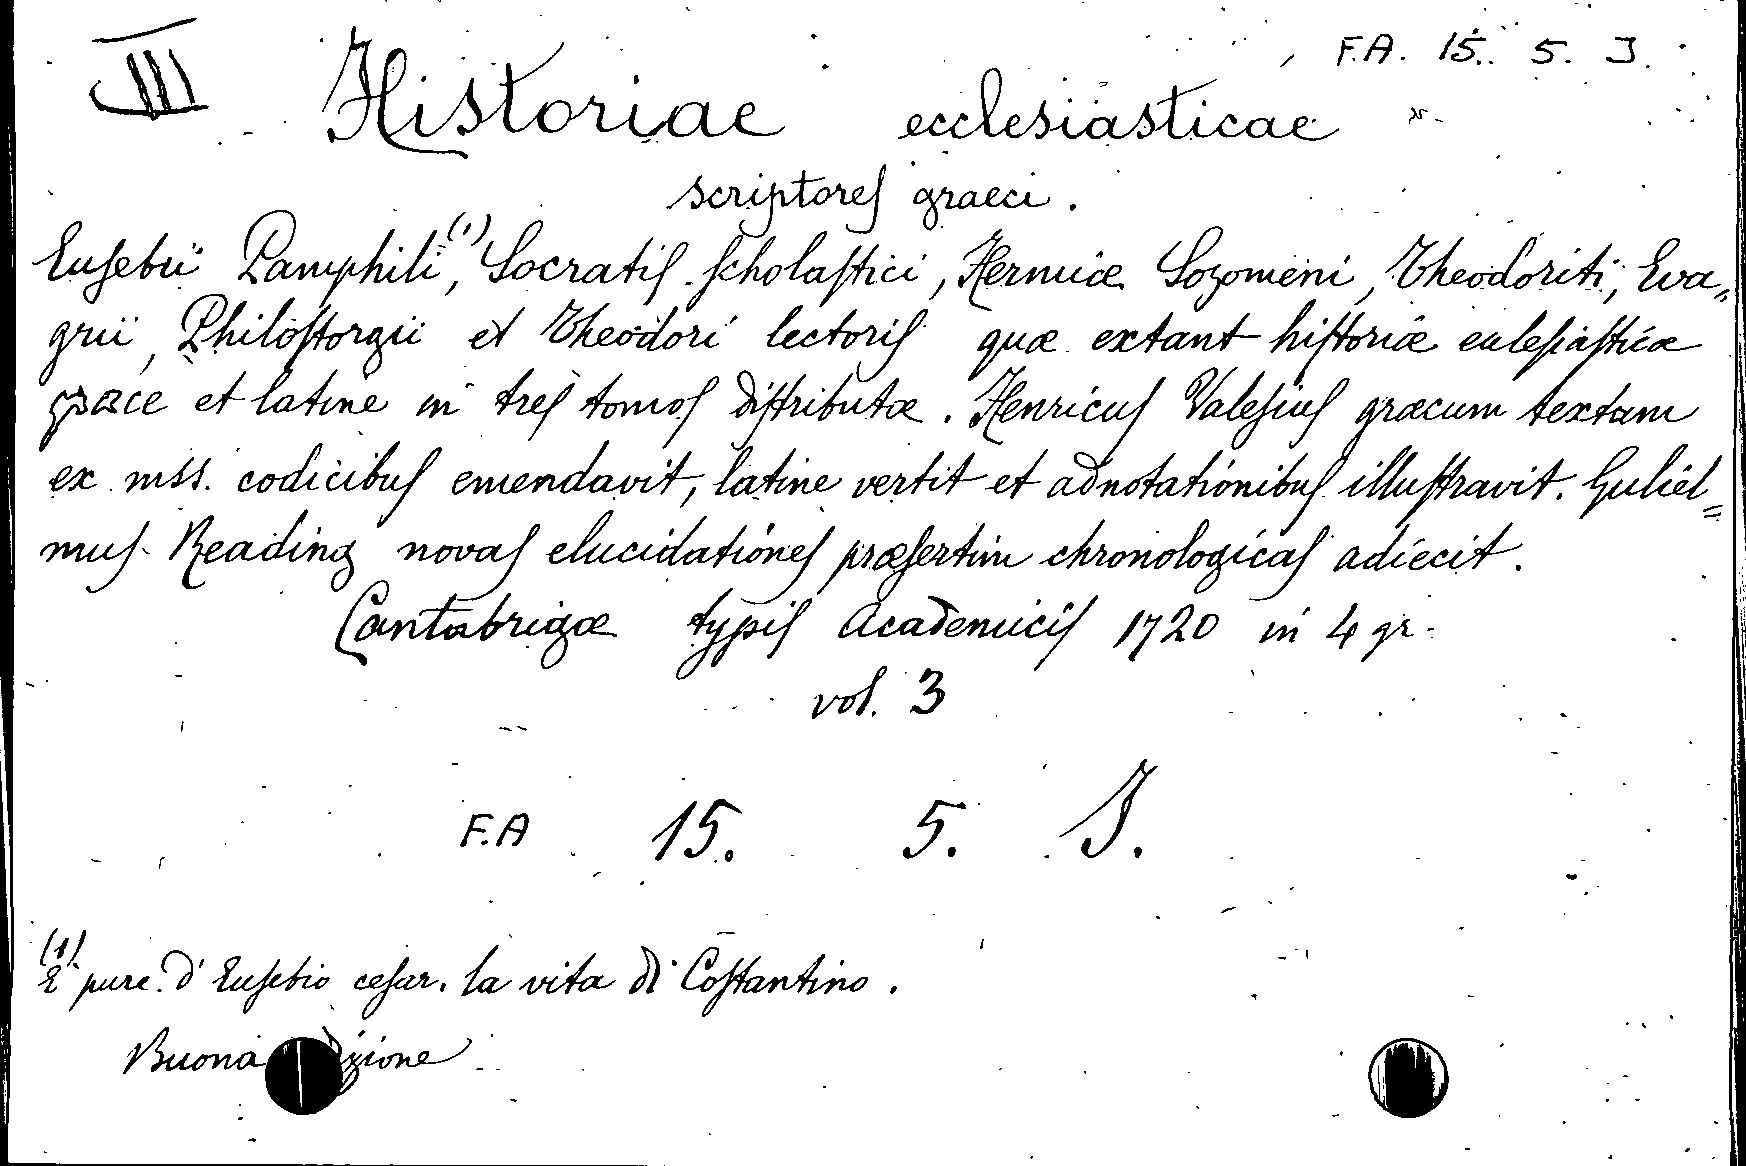 III F.A. 15. 5. I.
Historiae ecclesiasticae
scriptores graeci.
Eusebii Pamphili (1), Socratis scholastici, Hermiæ Sozomeni, Theodoriti, Eva„
grii, Philostorgii et Theodori lectoris quæ extant historiæ eclesiasticæ
græce et latine in tres tomos distributæ. Henricus Valesius græcum textum
ex mss. codicibus emendavit, latine vertit et adnotationibus illustravit. Guliel=
mus Reading novas elucidationes præsertim chronologicas adiecit.
Cantabrigæ typis Academicis 1720 in 4 gr.
vol. 3
F.A 15. 5. I.
(1) E' pure d'Eusebio cesar. la vita di Costantino.
Buona edizione